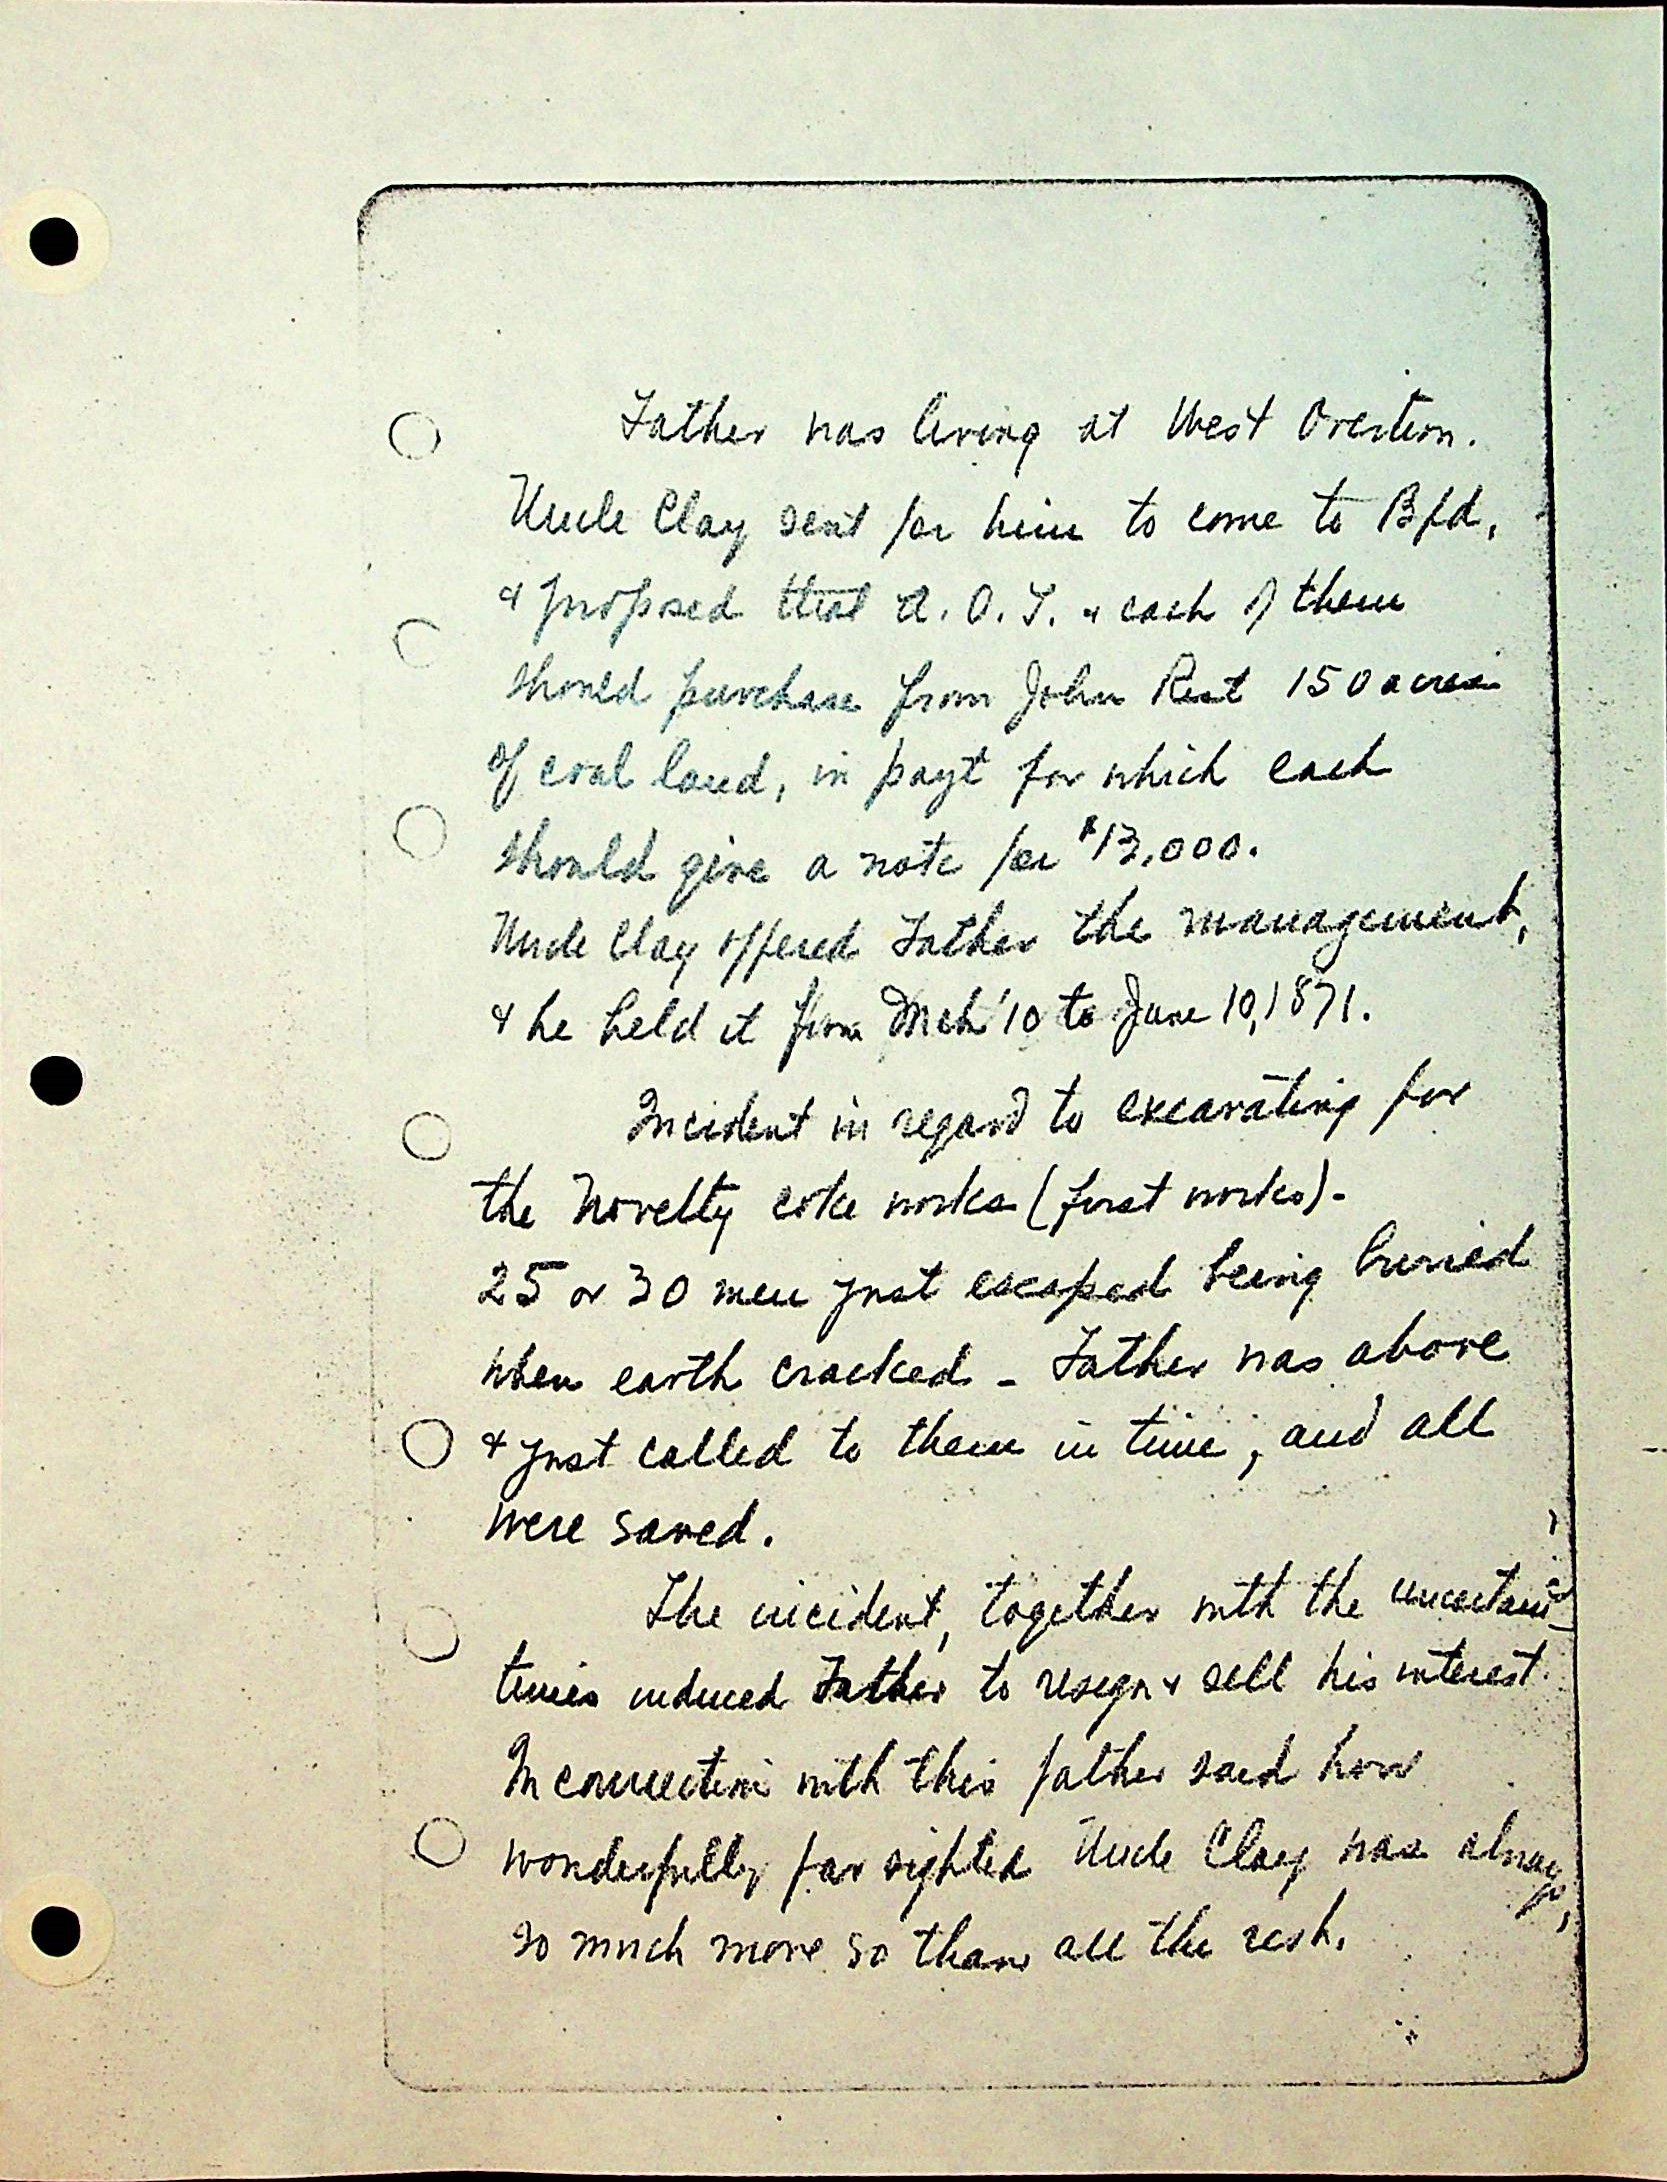 Father was living at West Overton.
Uncle Clay sent for him to come to Bfd,
& proposed that A. O. T. & each of them
should purchase from John Rist 150 acres
of coal land, in payt for which each
should give a note for $13,000.
Uncle Clay offered Father the management,
& he held it from Mch 10 to June 10, 1871.
Incident in regard to excavating for
the Novelty coke works (first works)-
25 or 30 men just escaped being buried
when earth cracked - Father was above
& just called to them in time, and all
were saved.
The incident, together with the uncertain
times induced Father to resign & sell his interest.
In connection with this father said how
wonderfully far sighted Uncle Clay was always,
so much more so than all the rest.